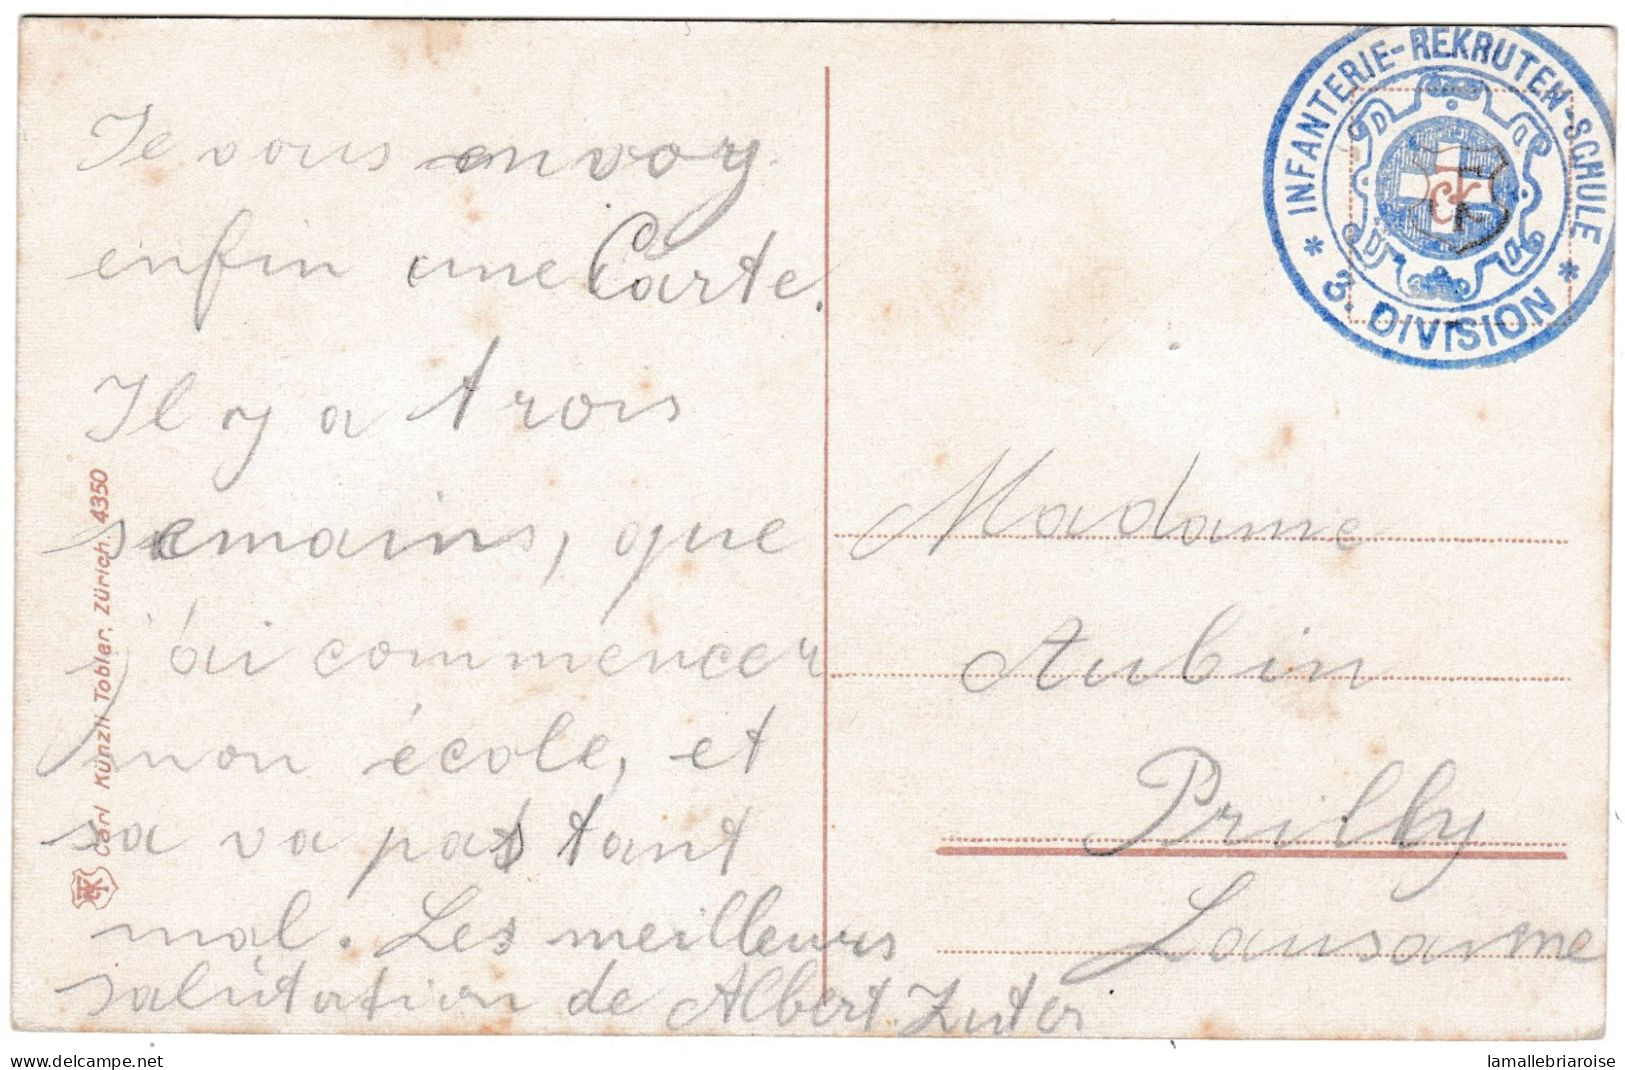 Je vous envoy
enfin une Carte.
Il y a trois
semains, que
j'ai commencer
mon école, et
sa va pas tant
mal. Les meilleurs
salutation de Albert Zuter
Carl Künzli Tobler, Zürich. 4350
INFANTERIE-REKRUTEN-SCHULE
* 3. DIVISION *
Madame
Aubin
Prilly
Lausanne
delcampe.net
lamallebriaroise